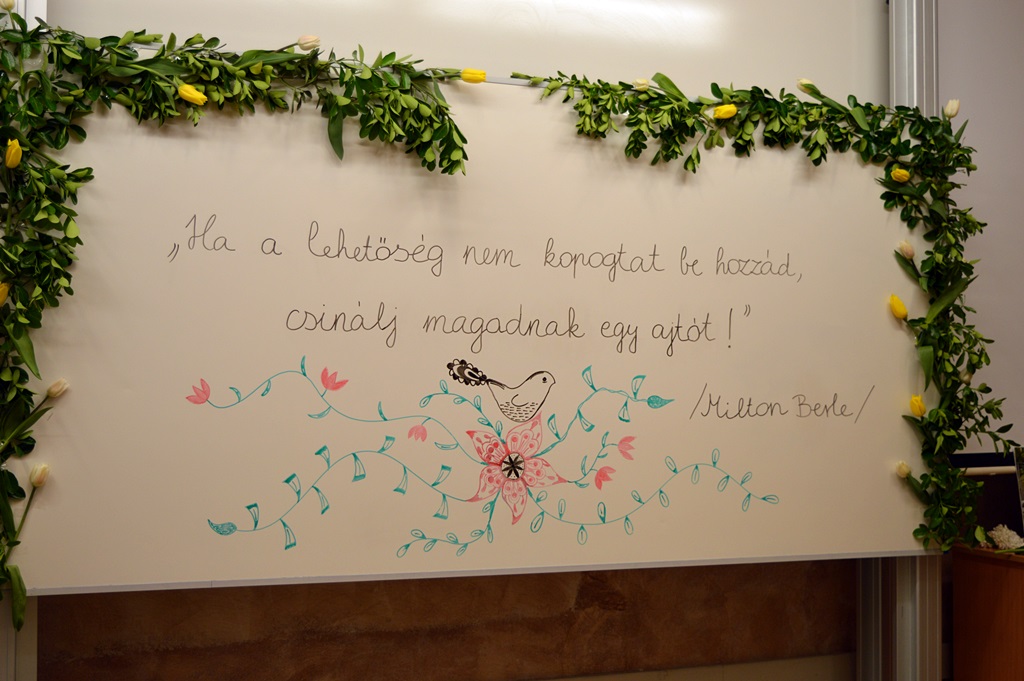 „Ha a lehetőség nem kopogtat be hozzád,
csinálj magadnak egy ajtót!”
/Milton Berle/